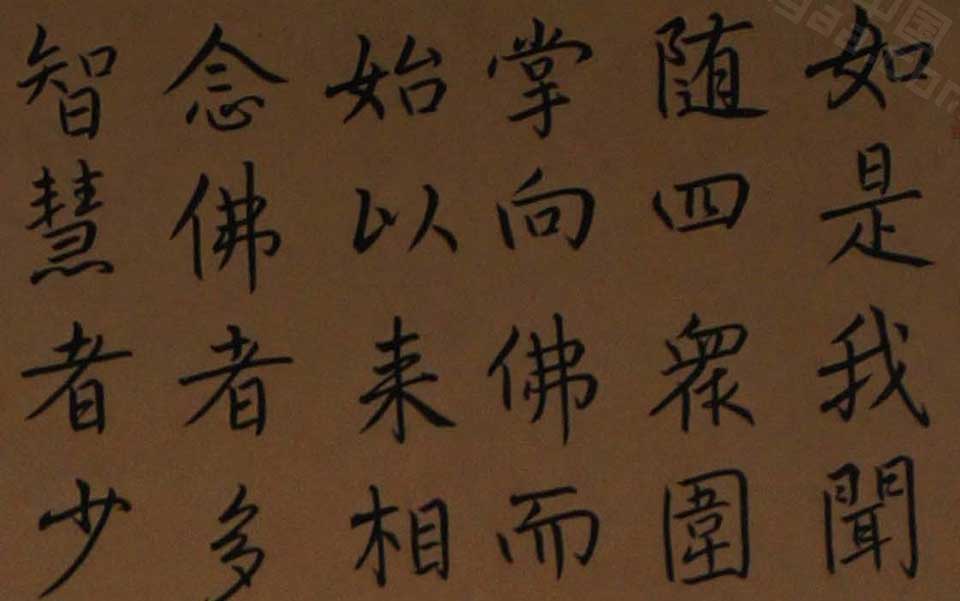 如是我聞
随四眾圍
掌向佛而
始以来相
念佛者多
智慧者少